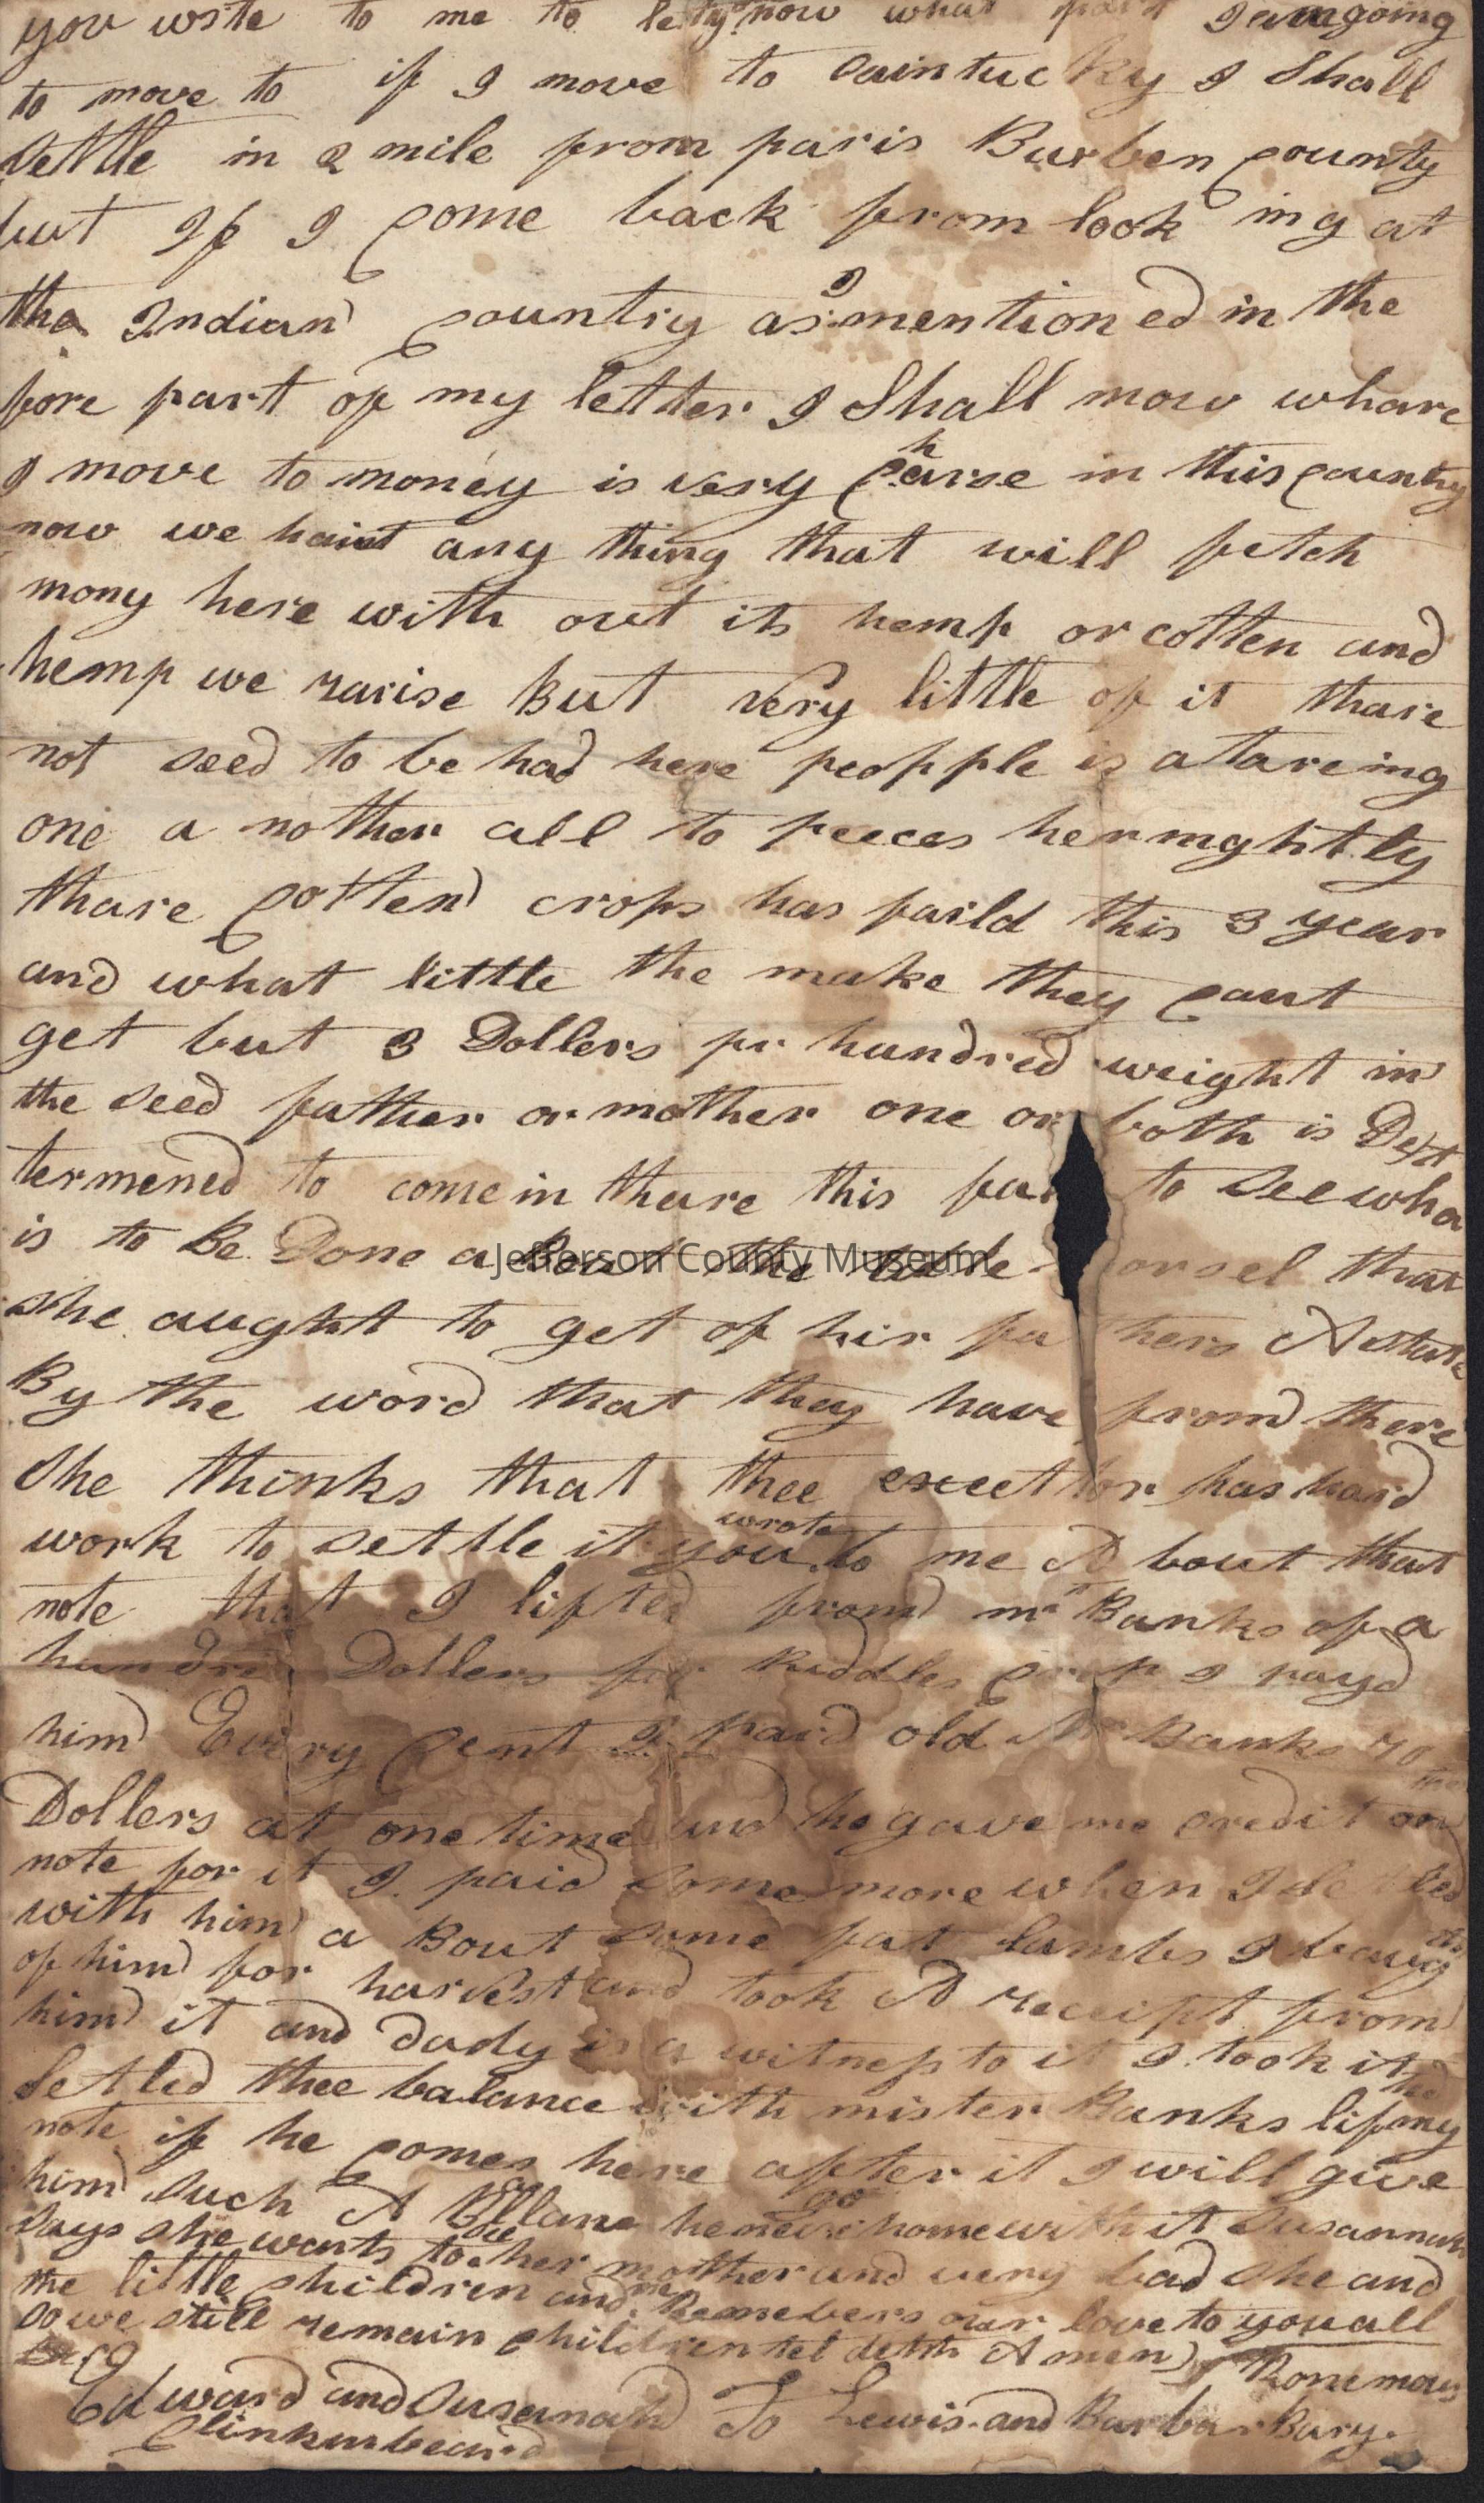 you wrote to me to let you now what part I am going
to move to if I move to Caintucky I Shall
settle in 2 mile from paris Burben county
but If I come back from look ing at
the Indian country as I mention ed in the
fore part of my letter I Shall now whare
I move to money is very scharse in this country
now we haint any thing that will fetch
mony here with out its hemp or cotten and
hemp we rarise But very little of it thare
not seed to be had here peopple is a tareing
one a nother all to peeces her mightly
thare cotten crops has faild this 3 year
and what little the make they cant
get but 3 Dollers pr hundred weight in
the seed father or mother one or both is Det
termened to come in thare this fa to see wha
is to Be Done a Bout the little orsel that
she aught to get of hir fathers A state
By the word that they have from there
she thinks that thee execttor has hard
work to settle it you wrote to me A bout that
note that I lifted from mr Banks of a
hundred Dollers for Riddles I payd
him Every Cent I paid old Mr Banks 70
Dollers at one time and he gave me credit on the
note for it I paid some more when I setled
with him a Bout some fat lambs I
of him for harvest and took A receipt from
him it and dady is a witness to it I took it and
Setled thee balance with mister Banks lif my
note if he comes here after it I will give
him Such A he never go home with it Susannah
says she wants to see her mother and very bad she and
the little children and me Remebers our love to you all
so we still remain children tel deth Amen
Edward and Susanah To Lewis and Barbar Bary
Clinkenbeard
Jefferson County Museum